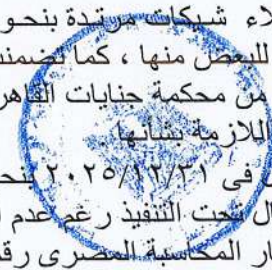 لاء شيكات مرتدة بنحو
للبعض منها ، كما تضمنت
من محكمة جنايات القاهر
اللازمة بشأنها .
فى ٢٠٢٥/١٢/٣١ بنحو
ال تحت التنفيذ رغم عدم ا
ار المحاسبة المصرى رقم